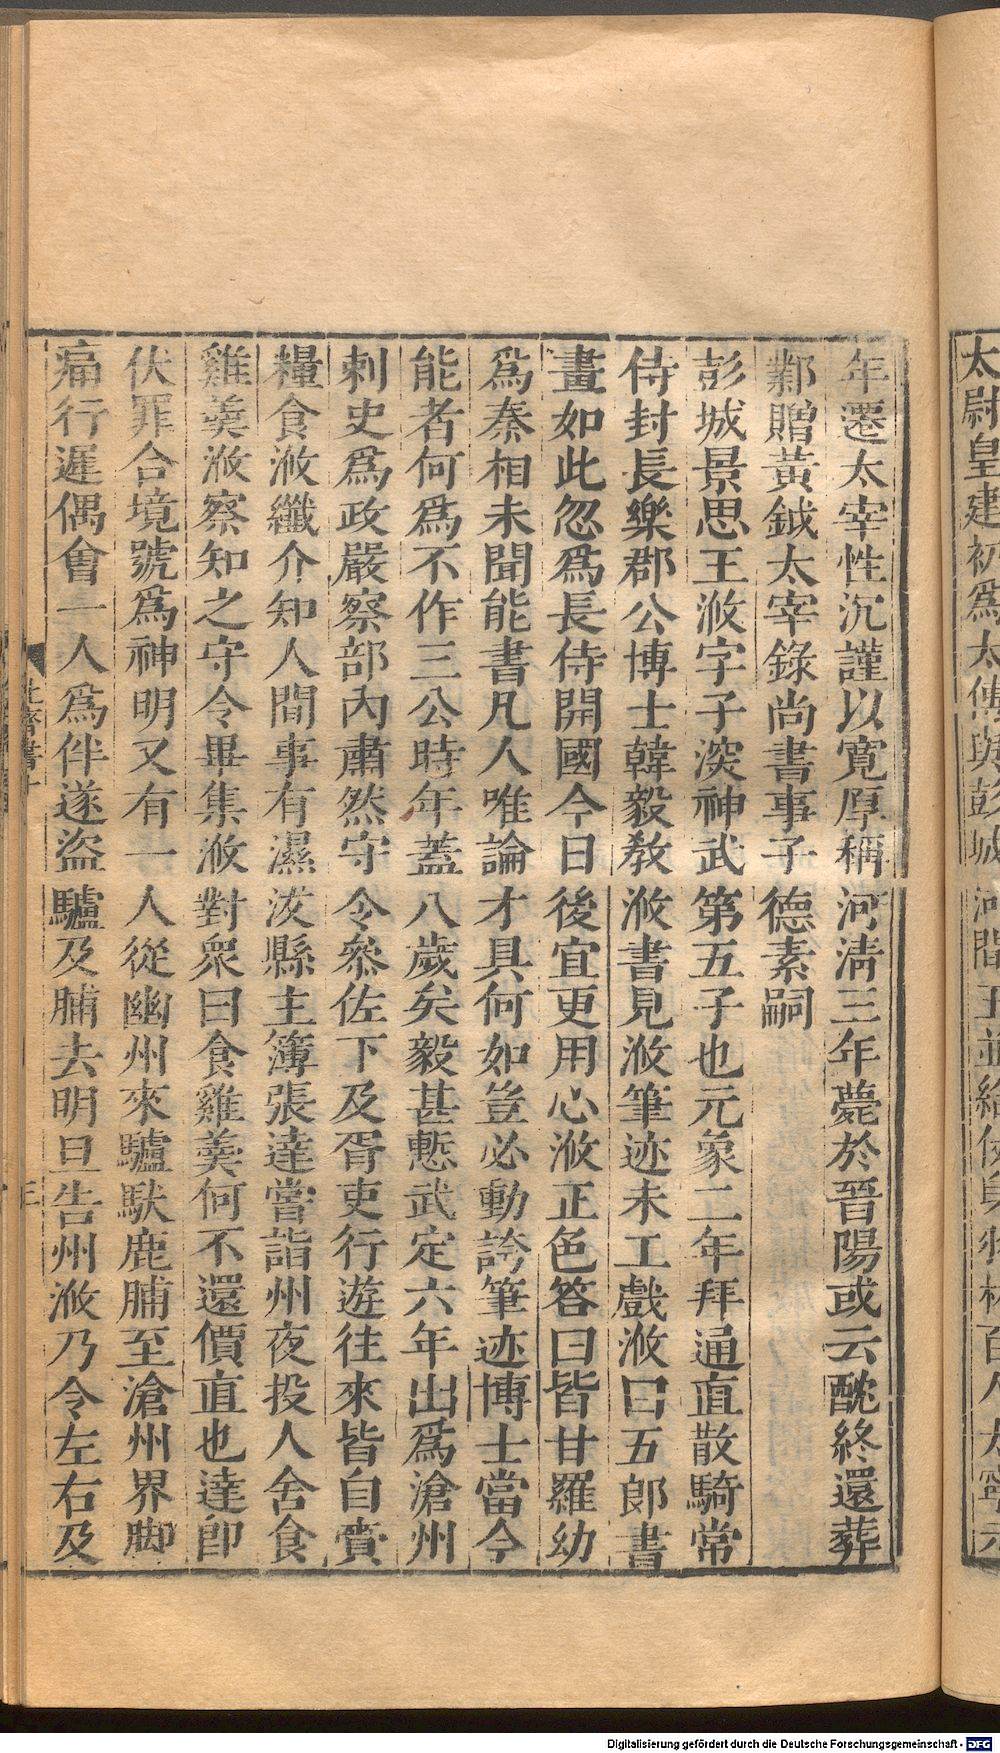 太尉皇建初爲太傅與彭城河間王並給
年遷太宰性沉謹以寬厚稱河淸三年薨於晉陽或云酖終還葬
鄴贈黃鉞太宰錄尚書事子德素嗣
彭城景思王浟字子深神武第五子也元象二年拜通直散騎常
侍封長樂郡公博士韓毅敎浟書見浟筆迹未工戲浟曰五郞書
畫如此忽爲長侍開國今日後宜更用心浟正色答曰昔甘羅幼
爲秦相未聞能書凡人唯論才具何如豈必動誇筆迹博士當今
能者何爲不作三公時年蓋八歲矣毅甚慙武定六年出爲滄州
刺史爲政嚴察部內肅然守令叅佐下及胥吏行遊往來皆自賫
糧食浟纖介知人間事有濕沃縣主簿張達嘗詣州夜投人舍食
雞羹浟察知之守令畢集浟對衆曰食雞羹何不還價直也達卽
伏罪合境號爲神明又有一人從幽州來驢馱鹿脯至滄州界脚
痛行遲偶會一人爲伴遂盜驢及脯去明旦告州浟乃令左右及
北齊書十
三
Digitalisierung gefördert durch die Deutsche Forschungsgemeinschaft - DFG